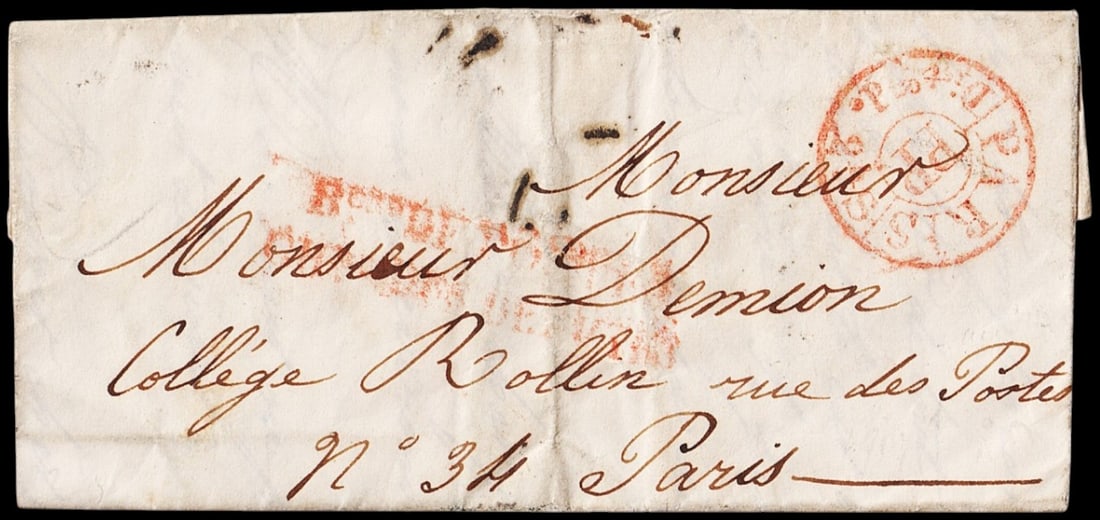 Monsieur
Monsieur Demion
Collège Rollin rue des Postes
N° 34 Paris
PARIS